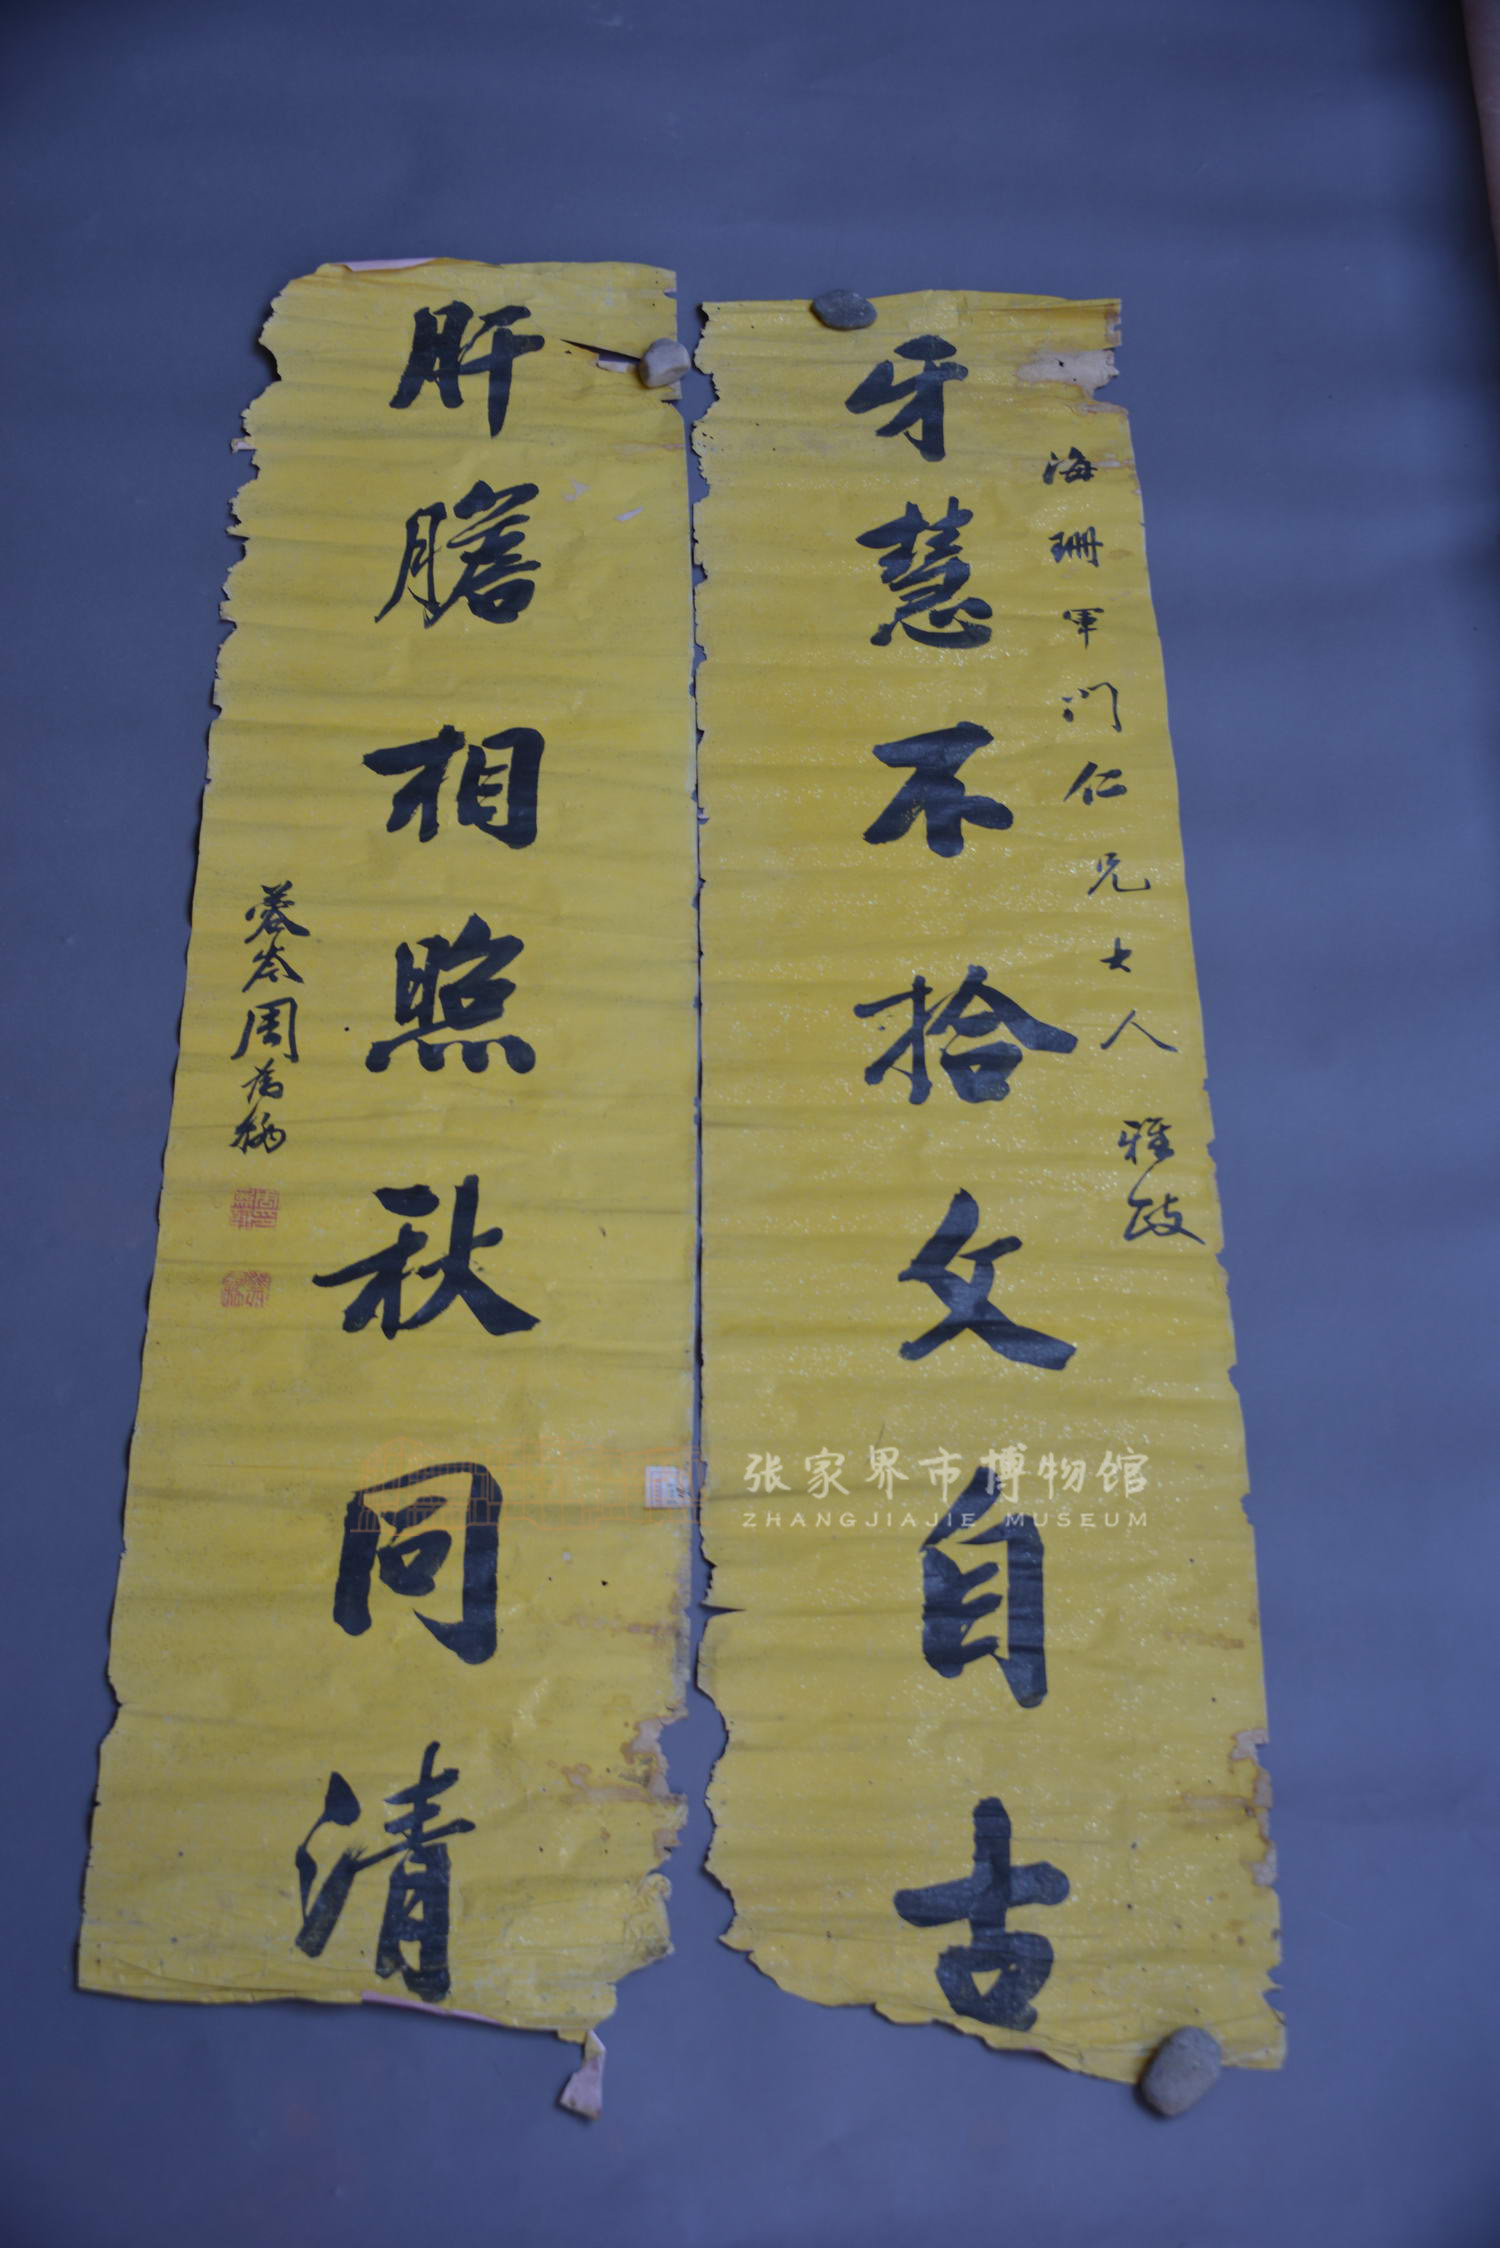 海珊軍门仁兄大人雅政
牙慧不拾文自古
肝膽相照秋同清
蓉岑周
张家界市博物馆
ZHANGJIAJIE MUSEUM